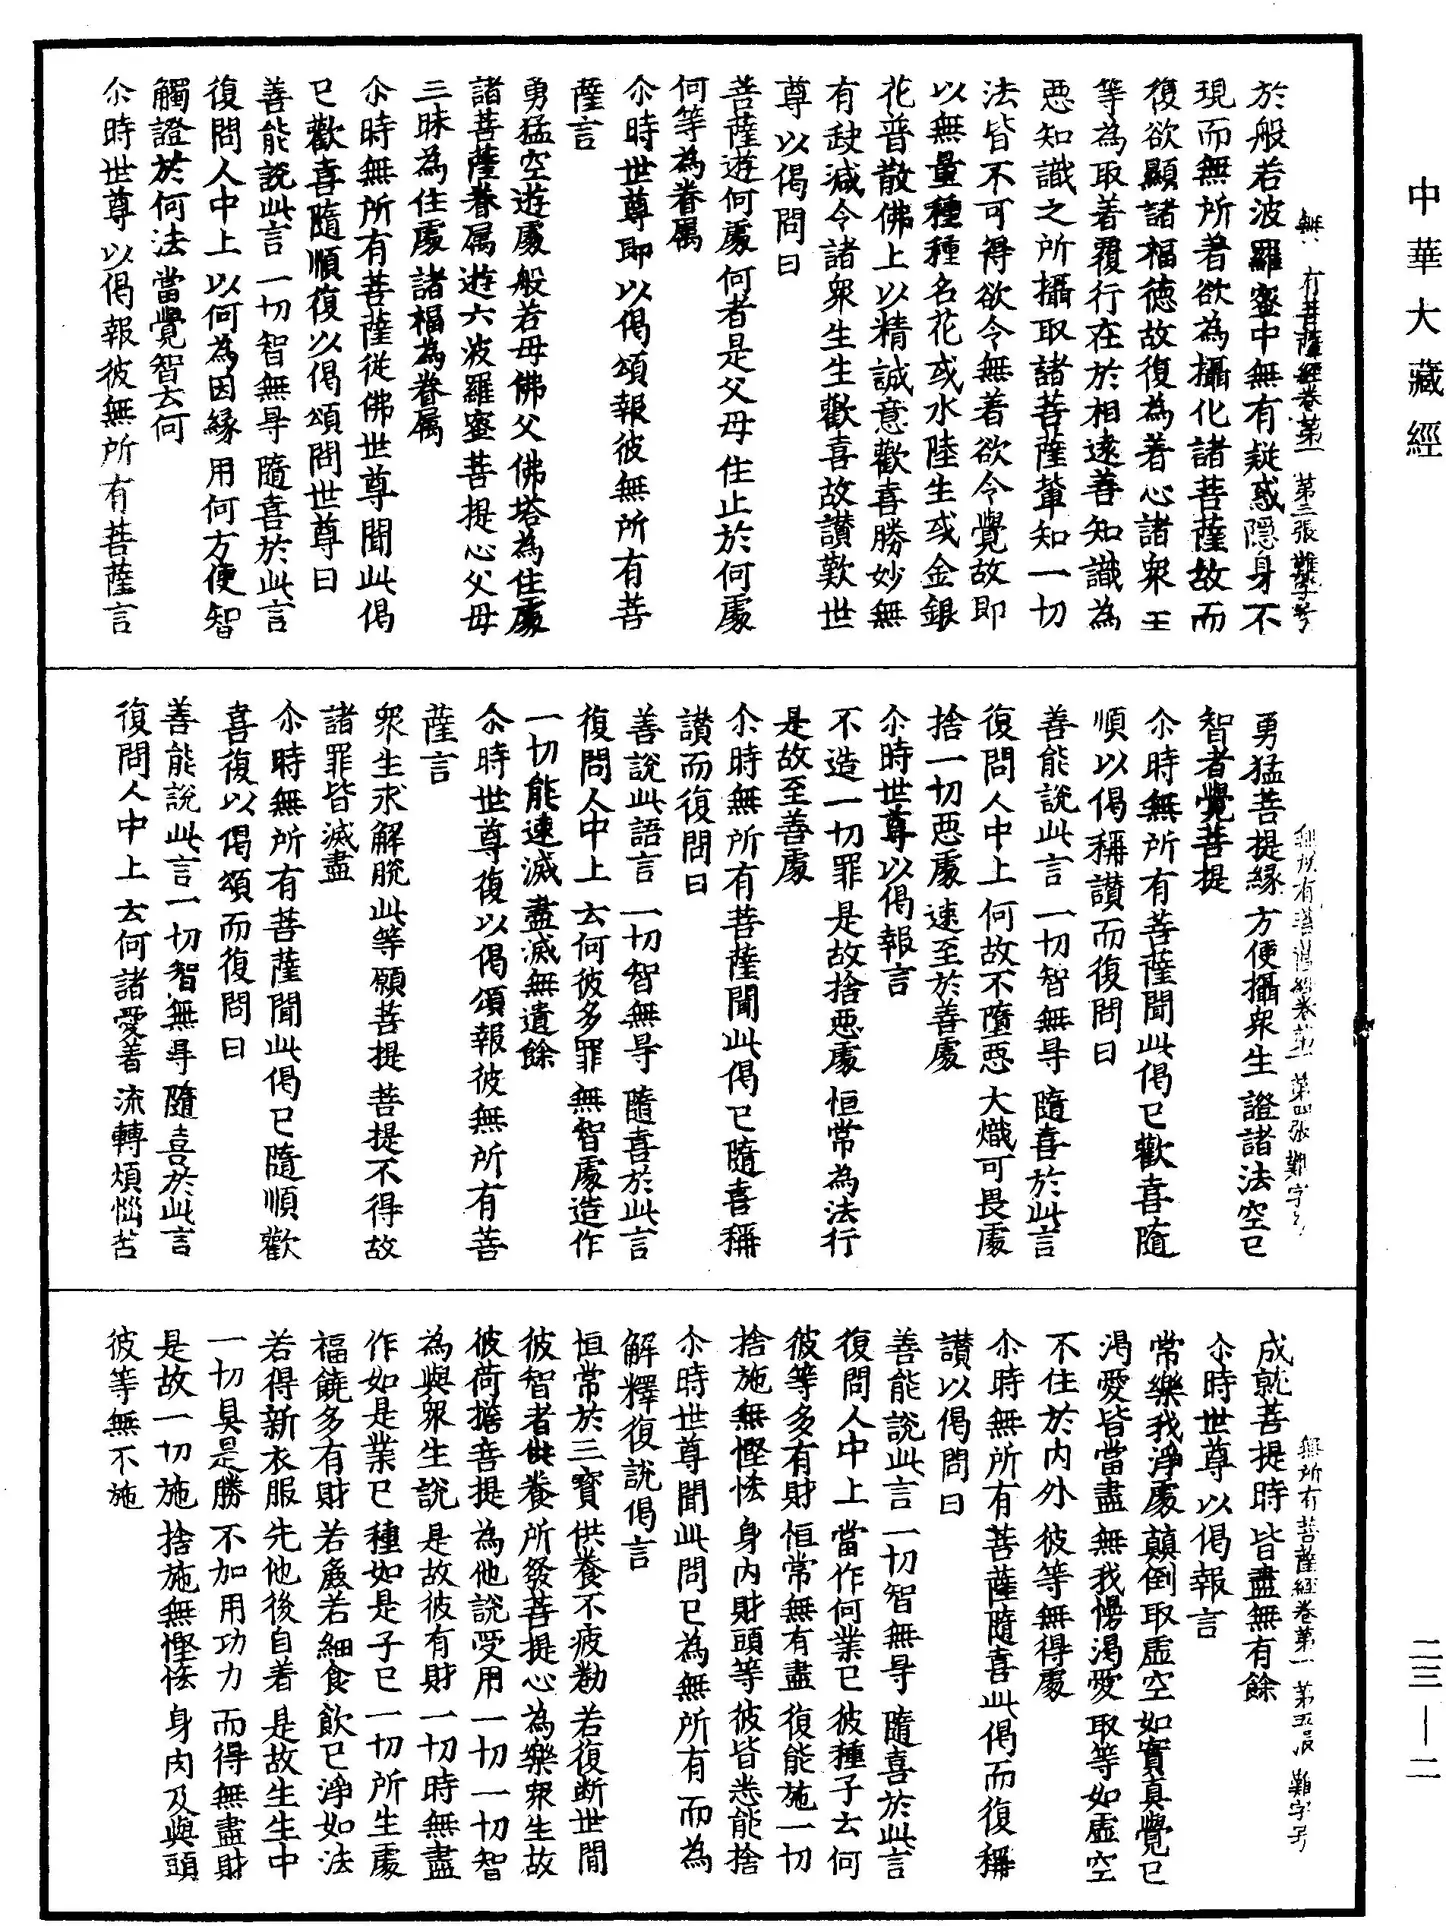 中華大藏經
無 有菩薩經卷第一 第三張 難字号
於般若波羅蜜中無有疑惑隱身不
現而無所著欲為攝化諸菩薩故而
復欲顯諸福德故復為著心諸衆生
等為取著覆行在於相遠善知識為
惡知識之所攝取諸菩薩輩知一切
法皆不可得欲令無著欲令覺故即
以無量種種名花或水陸生或金銀
花普散佛上以精誠意歡喜勝妙無
有缺減令諸衆生生歡喜故讃歎世
尊以偈問曰
菩薩遊何處 何者是父母 住止於何處
何等為眷属
尒時世尊即以偈頌報彼無所有菩
薩言
勇猛空遊處 般若母佛父 佛塔為住處
諸菩薩眷属 遊六波羅蜜 菩提心父母
三昧為住處 諸福為眷属
尒時無所有菩薩從佛世尊聞此偈
已歡喜隨順復以偈頌問世尊曰
善能說此言 一切智無㝵 隨喜於此言
復問人中上 以何為因緣 用何方便智
觸證於何法 當覺智去何
尒時世尊以偈報彼無所有菩薩言
無所有菩薩經卷第一 第四張 難字号
勇猛菩提緣 方便攝衆生 證諸法空已
智者覺菩提
尒時無所有菩薩聞此偈已歡喜隨
順以偈稱讃而復問曰
善能說此言 一切智無㝵 隨喜於此言
復問人中上 何故不墮惡 大熾可畏處
捨一切惡處 速至於善處
尒時世尊以偈報言
不造一切罪 是故捨惡處 恒常為法行
是故至善處
尒時無所有菩薩聞此偈已隨喜稱
讃而復問曰
善說此語言 一切智無㝵 隨喜於此言
復問人中上 去何彼多罪 無智處造作
一切能速滅 盡滅無遺餘
尒時世尊復以偈頌報彼無所有菩
薩言
衆生求解脫 此等願菩提 菩提不得故
諸罪皆滅盡
尒時無所有菩薩聞此偈已隨順歡
喜復以偈頌而復問曰
善能說此言 一切智無㝵 隨喜於此言
復問人中上 去何諸愛著 流轉煩惱苦
無所有菩薩經卷第一 第五張 難字号
成就菩提時 皆盡無有餘
尒時世尊以偈報言
常樂我淨處 顛倒取虛空 如實真覺已
渴愛皆當盡 無我愓渴愛 取等如虛空
不住於內外 彼等無得處
尒時無所有菩薩隨喜此偈而復稱
讃以偈問曰
善能說此言 一切智無㝵 隨喜於此言
復問人中上 當作何業已 彼種子去何
彼等多有財 恒常無有盡 復能施一切
捨施無慳悋 身內財頭等 彼皆悉能捨
尒時世尊聞此問已為無所有而為
解釋復說偈言
恒常於三寶 供養不疲勌 若復断世間
彼智者供養 所發菩提心 為樂衆生故
彼荷擔菩提 為他說受用 一切一切智
為與衆生說 是故彼有財 一切時無盡
作如是業已 種如是子已 一切所生處
福饒多有財 若麁若細食 飲已淨如法
若得新衣服 先他後自着 是故生生中
一切具是勝 不加用功力 而得無盡財
是故一切施 捨施無慳悋 身肉及與頭
彼等無不施
二三—二